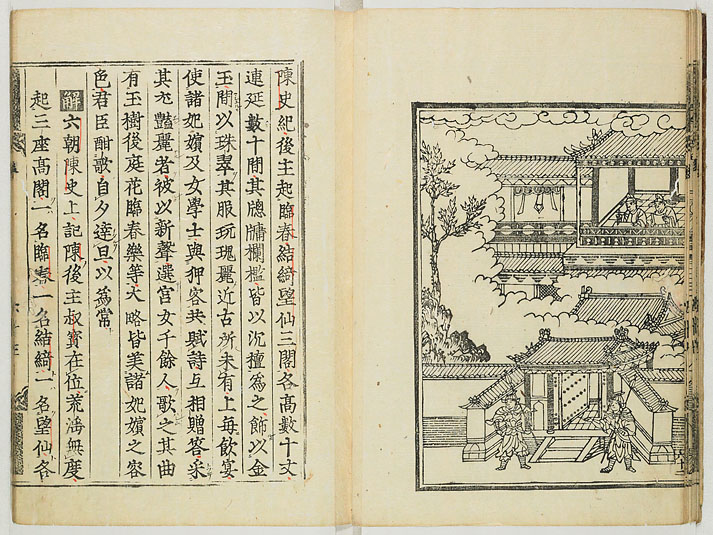 陳史紀後主起臨春結綺望仙三閣各高數十丈
連延數十間其牕牗欄檻皆以沉檀為之飾以金
玉間以珠翠其服玩瑰麗近古所未有上每飲宴
使諸妃嬪及女學士與狎客共賦詩互相贈答采
其尤豔麗者被以新聲選宮女千餘人歌之其曲
有玉樹後庭花臨春樂等大略皆美諸妃嬪之容
色君臣酣歌自夕達旦以為常
解六朝陳史上記陳後主叔寳在位荒滛無度
起三座高閣一名臨春一名結綺一名望仙各